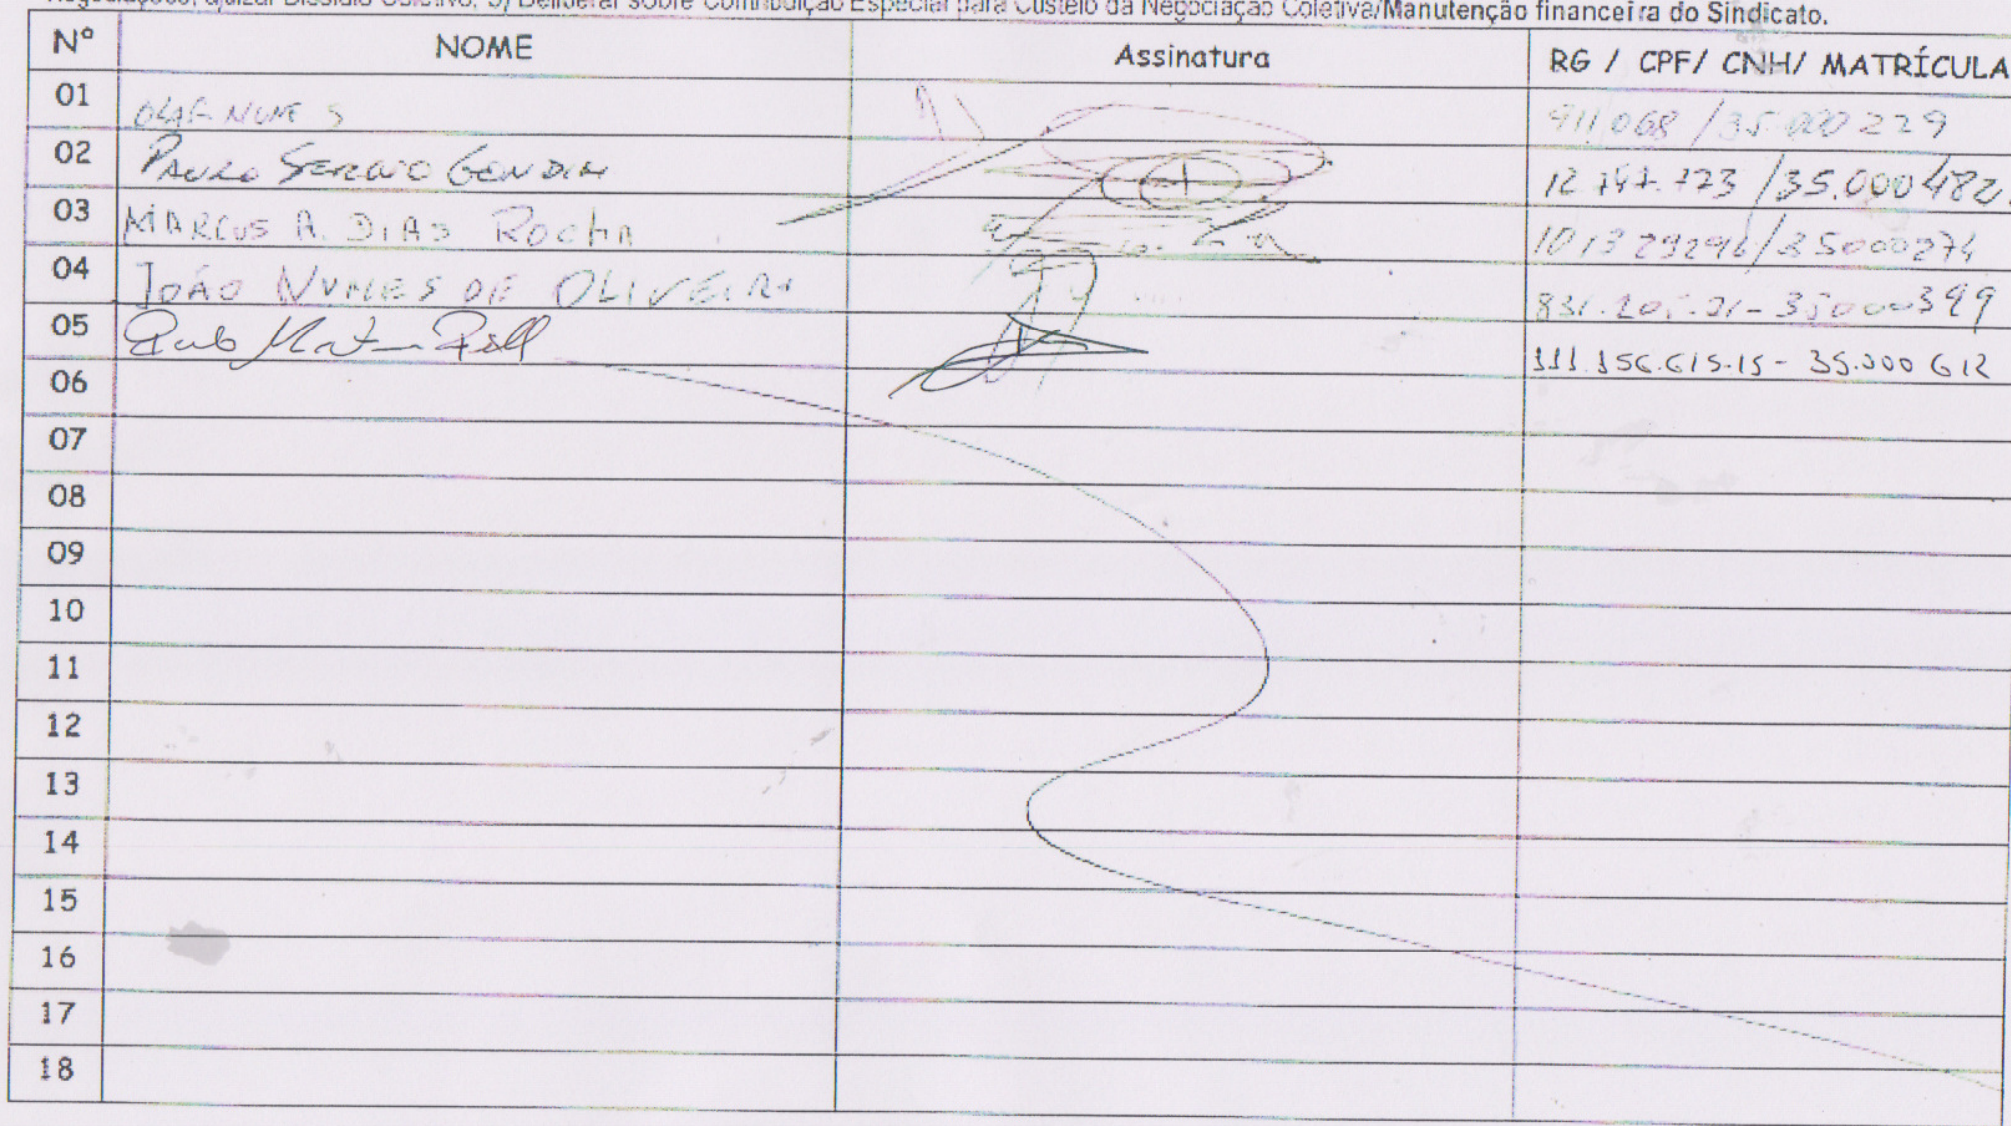 Negociações, ajuizar Dissídio Coletivo; 5) Deliberar sobre Contribuição Especial para Custeio da Negociação Coletiva/Manutenção financeira do Sindicato.
Nº NOME Assinatura RG / CPF/ CNH/ MATRÍCULA
01 OLAF NUNES 911068 /35.000229
02 PAULO SERGIO GONDIM /35.000482
03 MARCUS A. DIAS ROCHA 101329296/35000274
04 JOÃO NUNES DE OLIVEIRA 35000399
05 111.156.615-15 - 35.000612
06
07
08
09
10
11
12
13
14
15
16
17
18